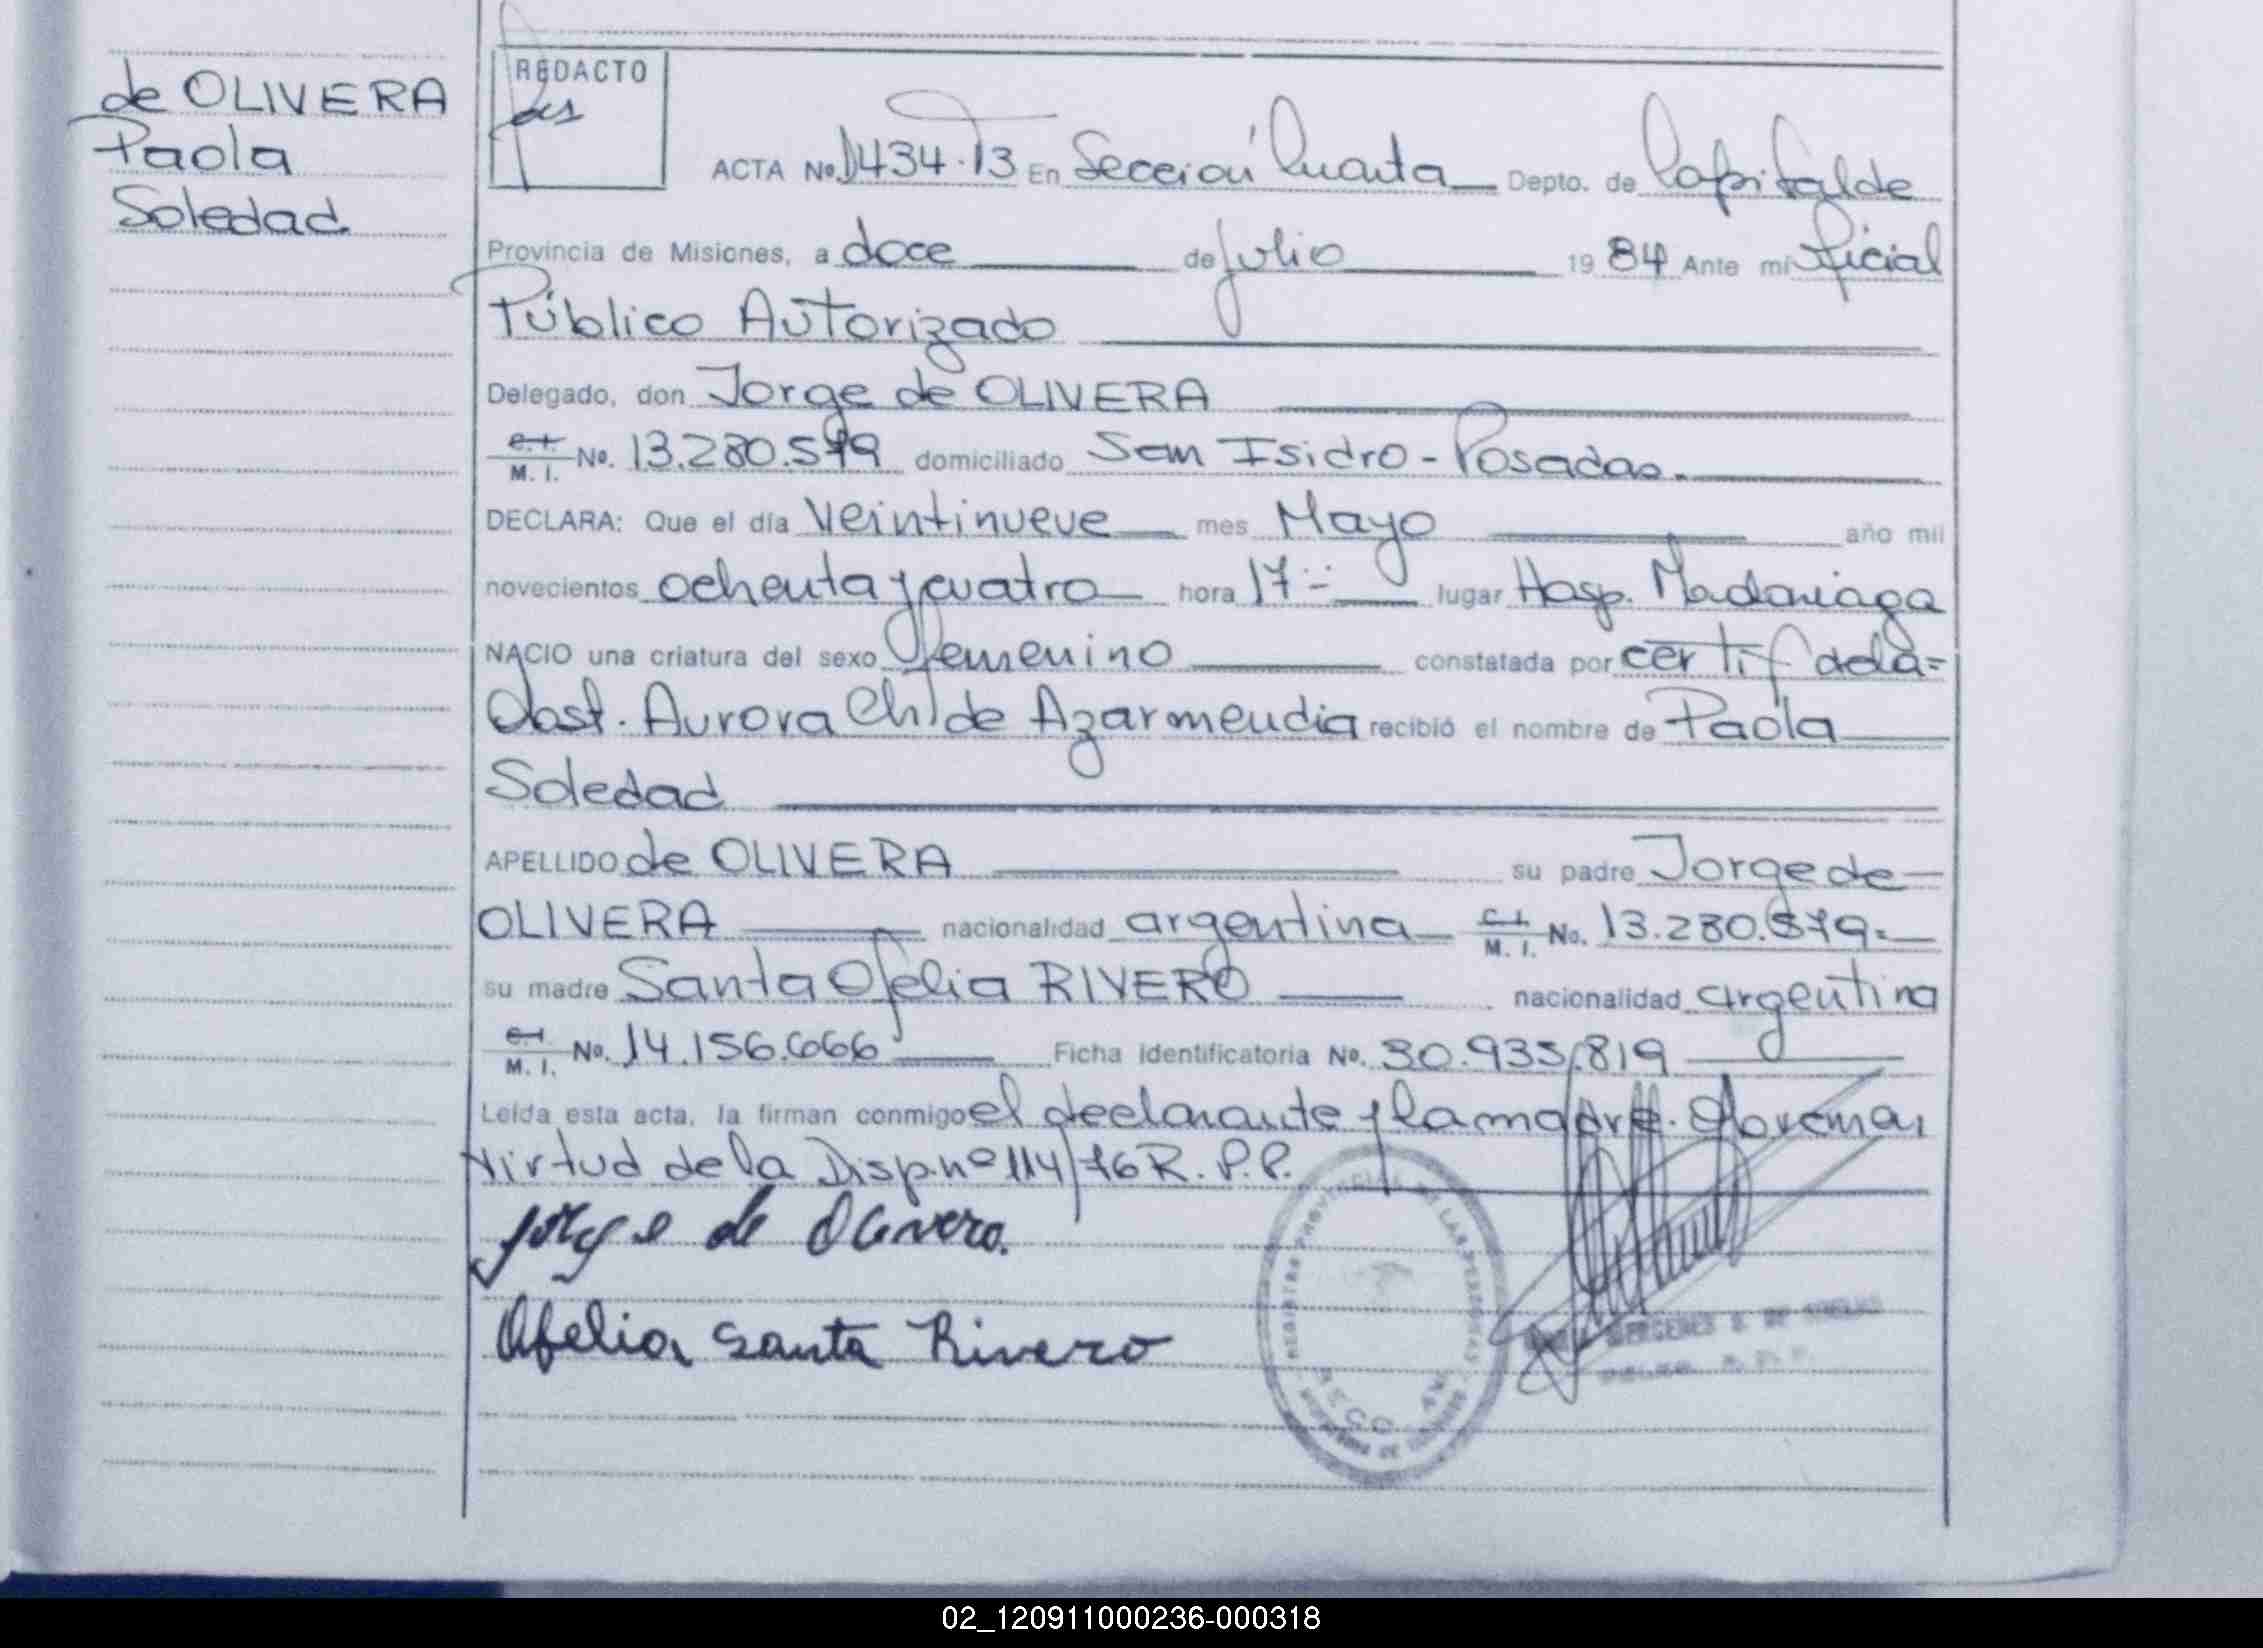 de OLIVERA
Paola
Soledad
REDACTO
ACTA No. 1434·T3 En Sección Cuarta Depto. de Capital de
Provincia de Misiones, a doce de julio 1984 Ante mi Oficial
Público Autorizado
Delegado, don Jorge de OLIVERA
C.I. M. I. No. 13.280.579 domiciliado San Isidro - Posadas.
DECLARA: Que el día veintinueve mes Mayo año mil
novecientos ochenta y cuatro hora 17 lugar Hosp. Madariaga
NACIO una criatura del sexo femenino constatada por certif de la=
Obst. Aurora Ch. de Azarmendia recibió el nombre de Paola
Soledad
APELLIDO de OLIVERA su padre Jorge de
OLIVERA nacionalidad argentina C.I. M. I. No. 13.280.579=
su madre Santa Ofelia RIVERO nacionalidad argentina
C.I. M. I. No. 14.156.666 Ficha Identificatoria No. 30.935.819
Leída esta acta, la firman conmigo el declarante y la madre.
virtud de la Disp. nº 114/76 R.P.P.
Jorge de Olivera.
Ofelia Santa Rivero
REGISTRO PROVINCIAL DE LAS PERSONAS
02_120911000236-000318